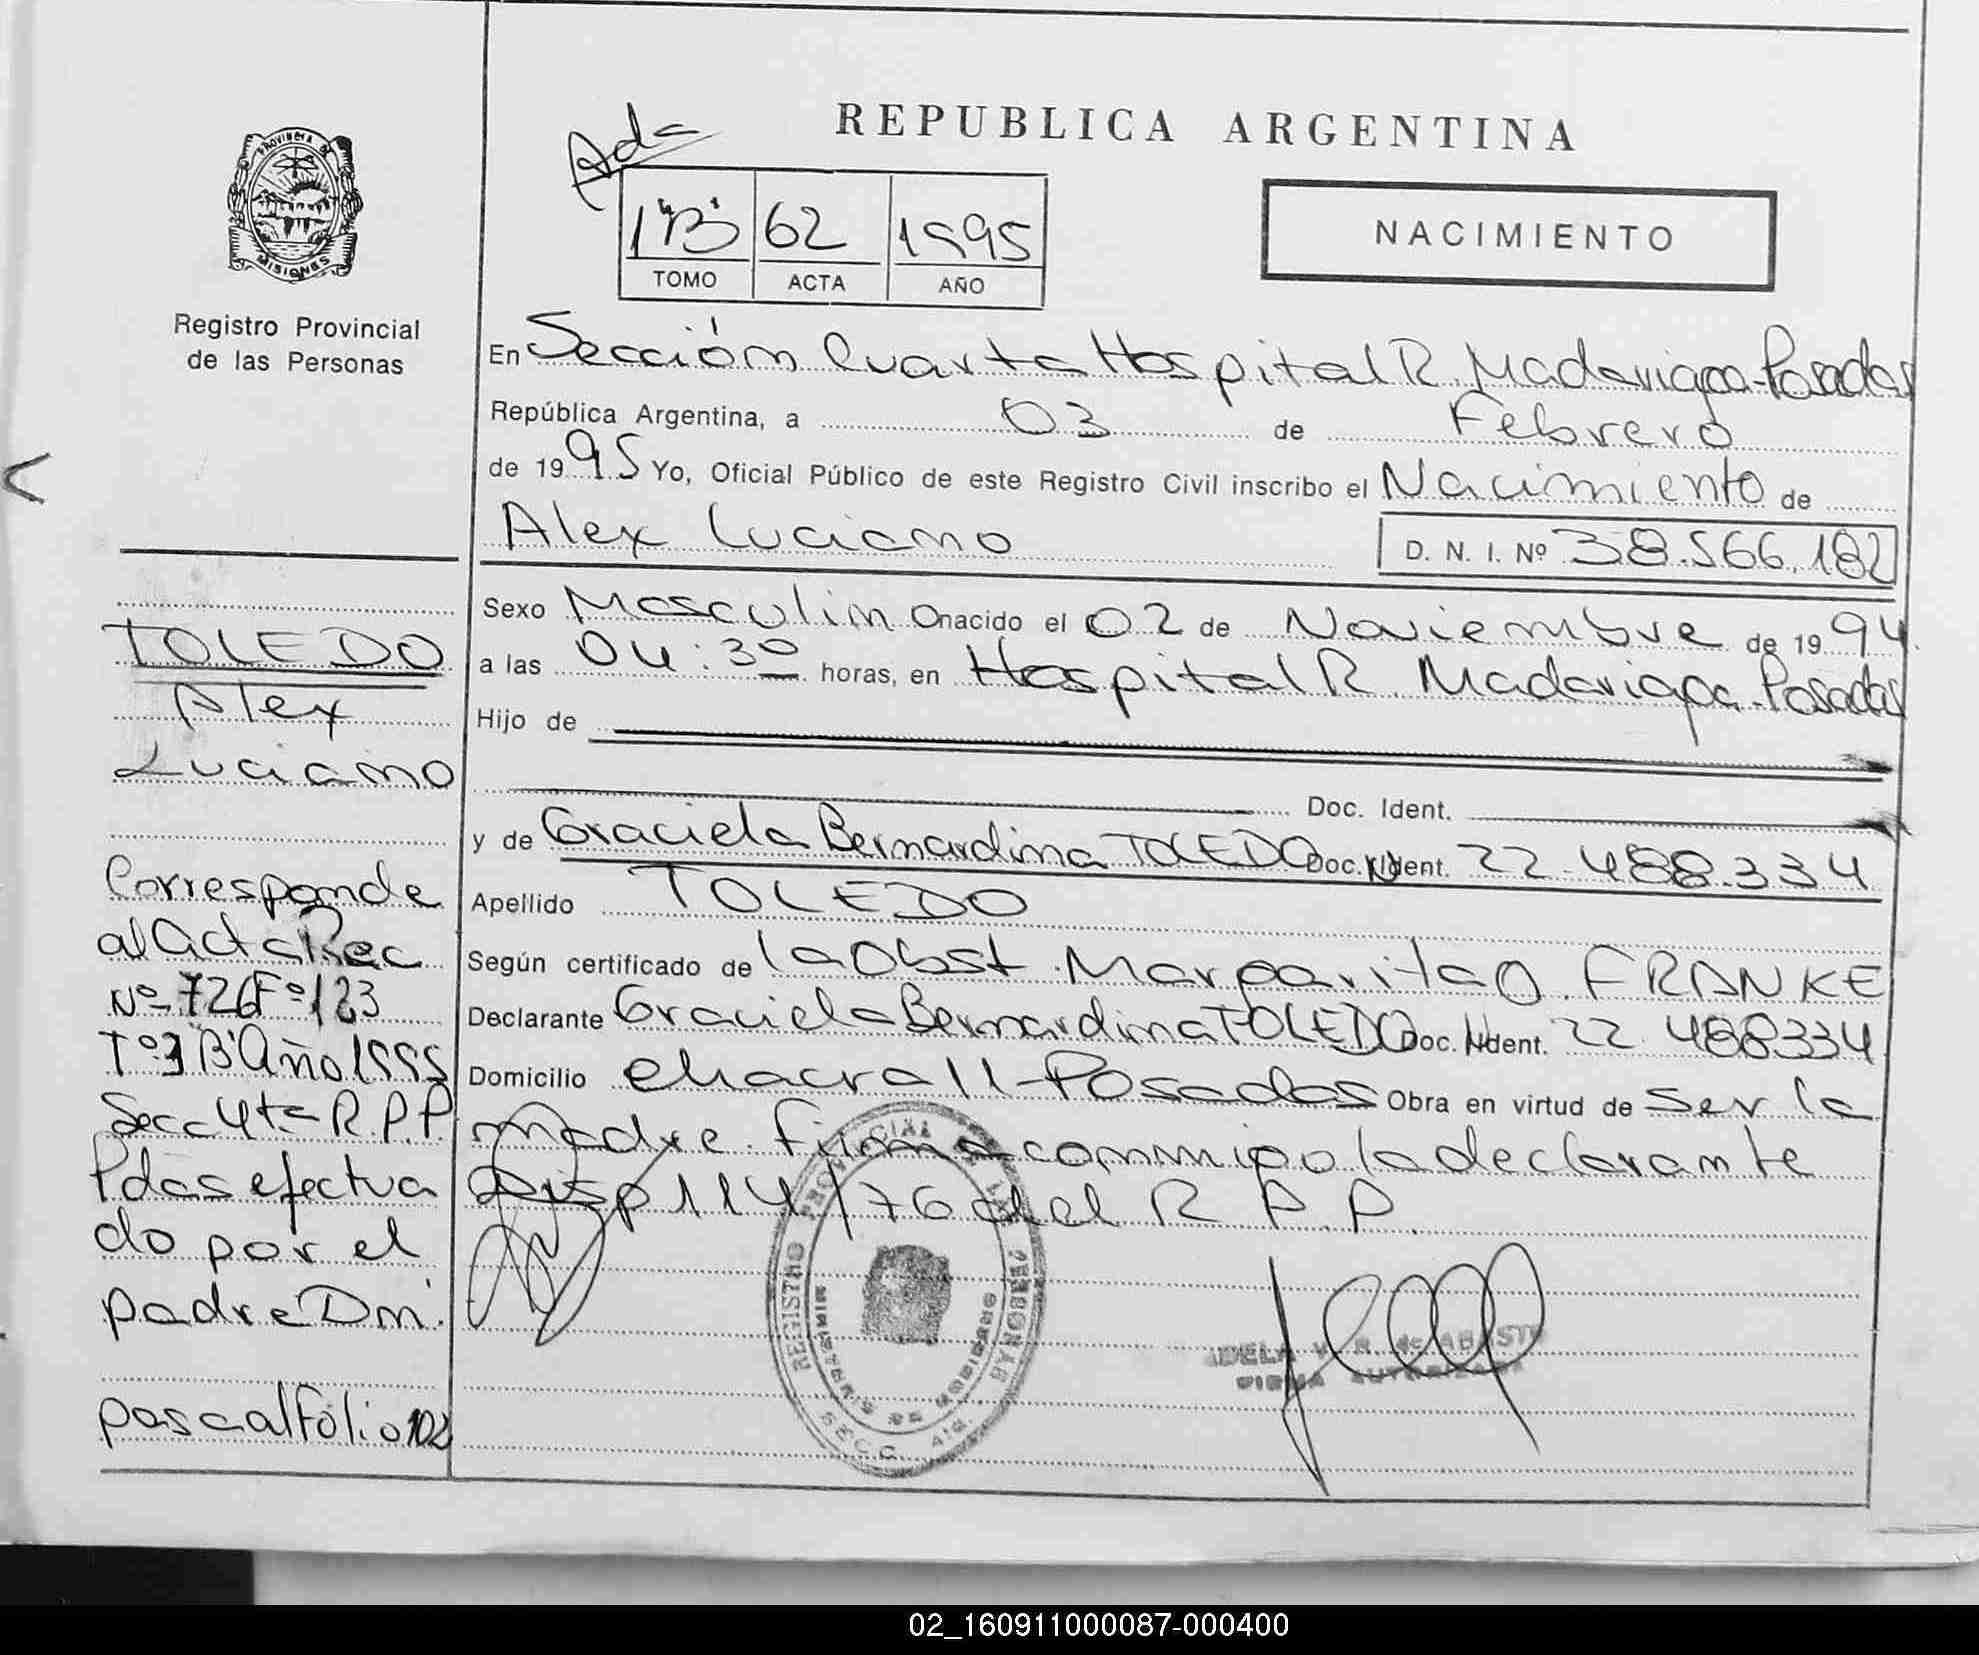 REPUBLICA ARGENTINA
Ada
1 "B" 62 1995
TOMO ACTA AÑO
NACIMIENTO
PROVINCIA DE
MISIONES
Registro Provincial
de las Personas
En Sección Cuarta Hospital R. Madariaga - Posadas
República Argentina, a 03 de Febrero
de 1995 Yo, Oficial Público de este Registro Civil inscribo el Nacimiento de
Alex Luciano D. N. I. Nº 38.566.182
Sexo Masculino nacido el 02 de Noviembre de 1994
a las 04:30 horas, en Hospital R. Madariaga - Posadas
Hijo de
Doc. Ident.
y de Graciela Bernardina TOLEDO Doc. Ident. 22.488.334
Apellido TOLEDO
Según certificado de la Obst. Margarita O. FRANKE
Declarante Graciela Bernardina TOLEDO Doc. Ident. 22.488334
Domicilio chacra 11 - Posadas Obra en virtud de ser la
madre. firma conmigo la declarante
Disp 114/76 del R P.P.
TOLEDO
Alex
Luciano
Corresponde
al Acta Rec
Nº 726 Fº 123
Tº 3 "B" Año 1995
Secc 4ta R.P.P.
Pdas efectua
do por el
padre Dni.
pasa al Folio 102
REGISTRO PROVINCIAL DE LAS PERSONAS
SECC. 4ta.
FIRMA AUTORIZADA
02_160911000087-000400